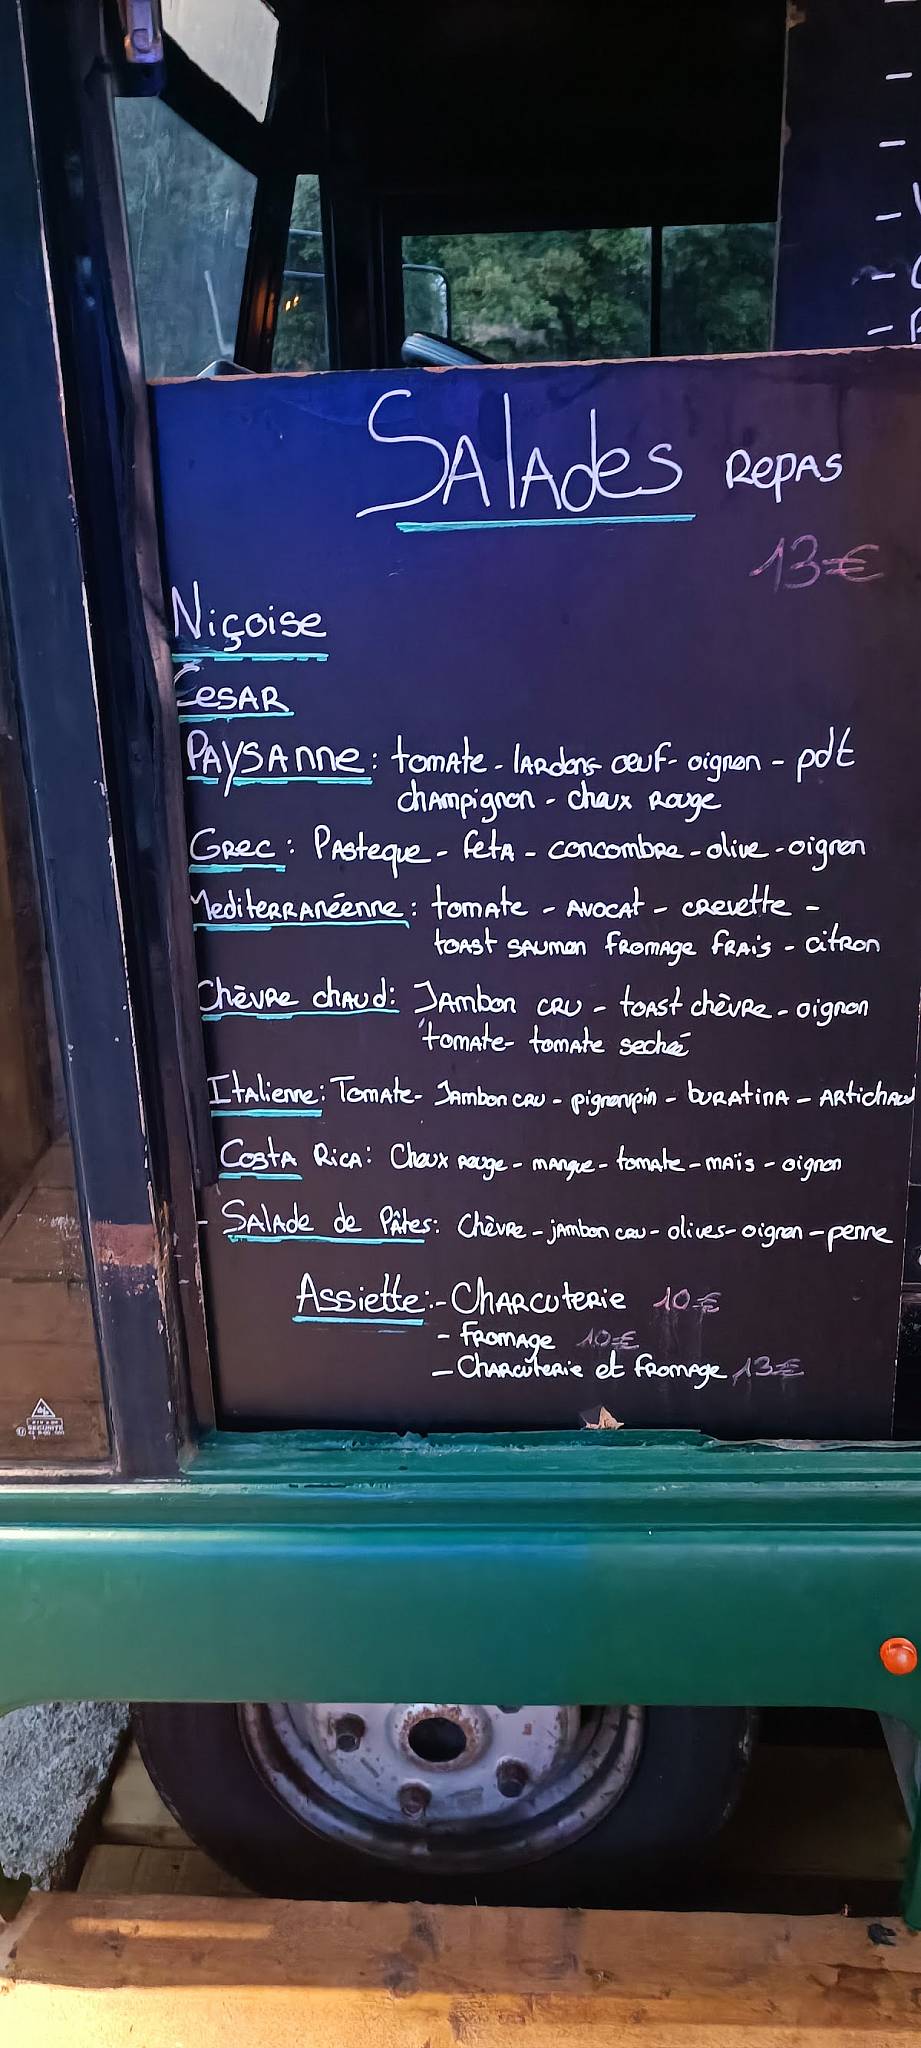 Salades Repas
13€
Niçoise
Cesar
Paysanne : tomate - lardons - œuf - oignon - pdt
champignon - choux rouge
Grec : Pasteque - feta - concombre - olive - oignon
Mediterranéenne : tomate - avocat - crevette -
toast saumon fromage frais - citron
Chèvre chaud : Jambon cru - toast chèvre - oignon
tomate - tomate seché
Italienne : Tomate - Jambon cru - pignon pin - buratina - Artichaud
Costa Rica : Choux rouge - mangue - tomate - maïs - oignon
- Salade de Pâtes : Chèvre - jambon cru - olives - oignon - penne
Assiette : - Charcuterie 10€
- fromage 10€
- Charcuterie et fromage 13€